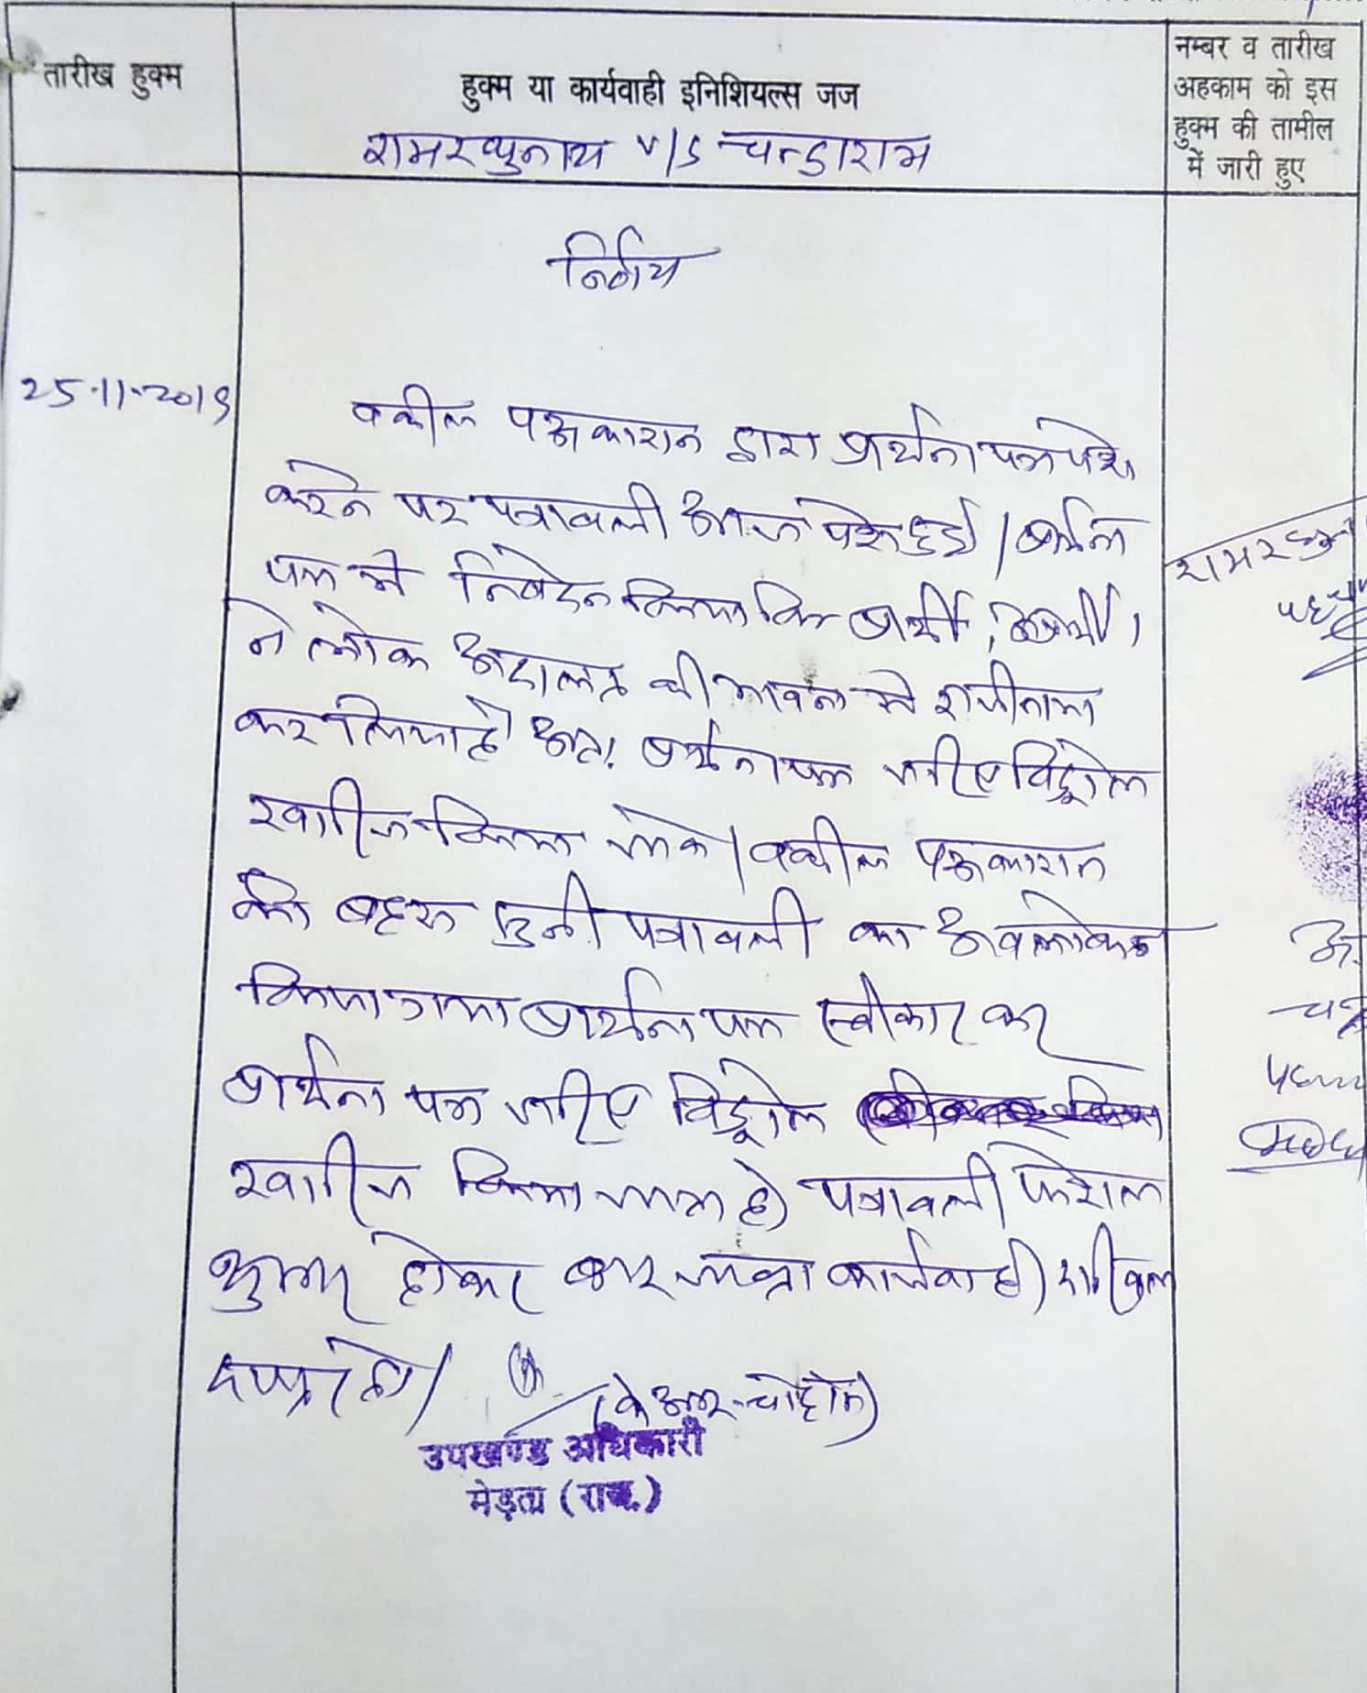 तारीख हुक्म
हुक्म या कार्यवाही इनिशियल्स जज
नम्बर व तारीख
अहकाम को इस
हुक्म की तामील
में जारी हुए
रामरघुनाथ v/s चन्डाराम
निर्णय
25.11.2019
वकील पक्षकारान द्वारा प्रार्थना पत्र पेश
करने पर पत्रावली आज पेश हुई। प्रार्थना
पत्र में निवेदन किया कि प्रार्थी, अप्रार्थी
ने लोक अदालत की भावना से राजीनामा
कर लिया है अतः प्रार्थना पत्र जरिए विड्रोल
खारिज किया जावे। वकील पक्षकारान
की बहस सुनी पत्रावली का अवलोकन
किया गया प्रार्थना पत्र स्वीकार कर
प्रार्थना पत्र जरिए विड्रोल
खारिज किया जाता है पत्रावली फैसल
शुमार होकर बाद जाब्ता कार्यवाही दाखिल
दफ्तर हो।
(के आर चौहान)
उपखण्ड अधिकारी
मेड़ता (राज.)